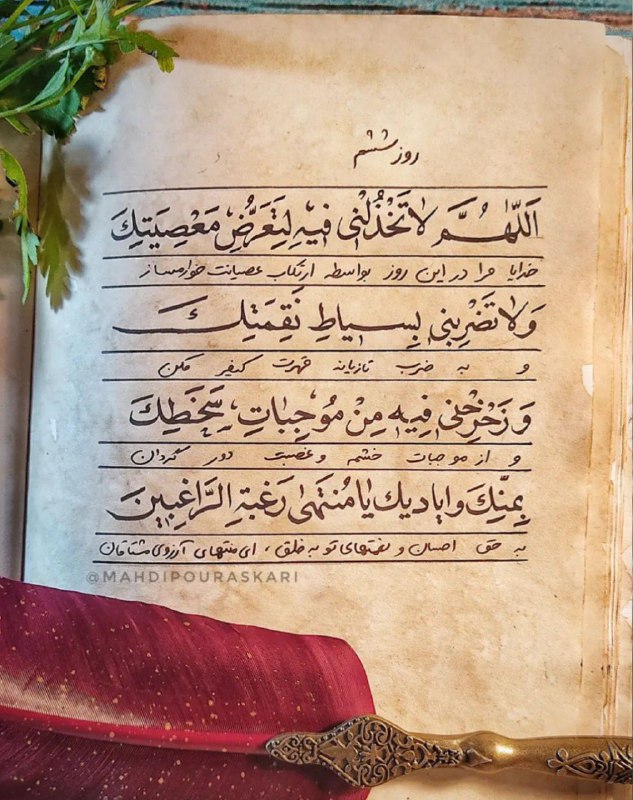 روز ششم
اَللّٰهُمَّ لا تَخْذُلْنی فیهِ لِتَعَرُّضِ مَعْصِیَتِكَ
خدایا مرا در این روز بواسطه ارتکاب عصیانت خوار مساز
وَلا تَضْرِبْنی بِسیاطِ نَقِمَتِكَ
و به ضرب تازیانه قهرت کیفر مکن
وَ زَحْزِحْنی فیهِ مِنْ مُوجِباتِ سَخَطِكَ
و از موجبات خشم و غضبت دور گردان
بِمَنِّكَ وَ اَیادیكَ یا مُنْتَهیٰ رَغْبَةِ الرَّاغِبینَ
به حق احسان و نعمتهای تو به خلق ، ای منتهای آرزوی مشتاقان
@MAHDIPOURASKARI